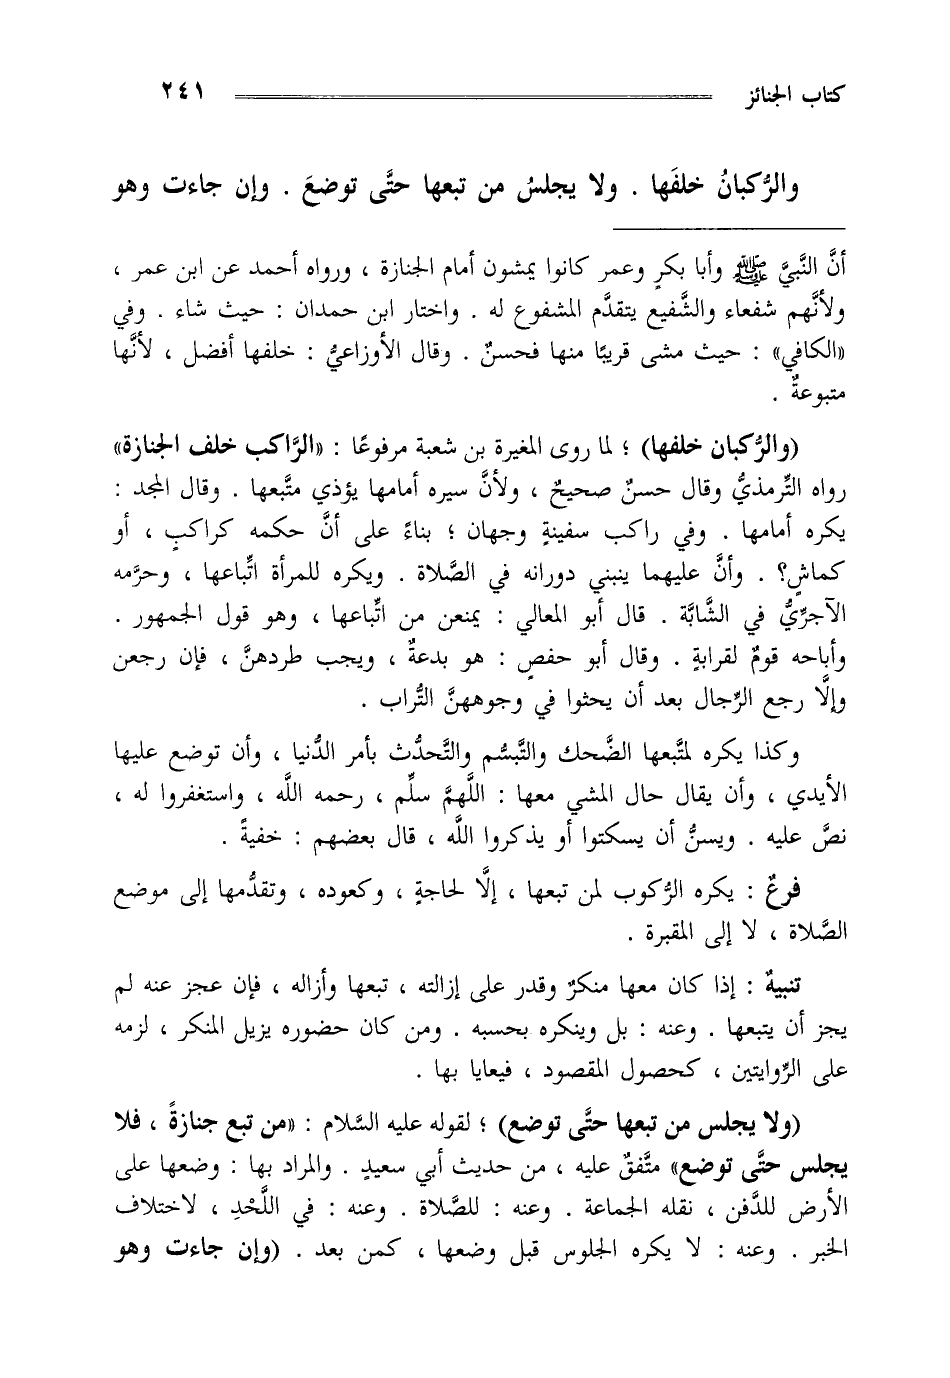 كتاب الجنائز ٢٤١
والرُّكبانُ خلفَها . ولا يجلسُ من تبعها حتَّى توضعَ . وإن جاءت وهو
أنَّ النَّبيَّ ﷺ وأبا بكرٍ وعمر كانوا يمشون أمام الجنازة ، ورواه أحمد عن ابن عمر ،
ولأنَّهم شفعاء والشَّفيع يتقدَّم المشفوع له . واختار ابن حمدان : حيث شاء . وفي
«الكافي» : حيث مشى قريبًا منها فحسنٌ . وقال الأوزاعيُّ : خلفها أفضل ، لأنَّها
متبوعةٌ .
(والرُّكبان خلفها) ؛ لما روى المغيرة بن شعبة مرفوعًا : «الرَّاكب خلف الجنازة»
رواه التِّرمذيُّ وقال حسنٌ صحيحٌ ، ولأنَّ سيره أمامها يؤذي متَّبعها . وقال المجد :
يكره أمامها . وفي راكب سفينةٍ وجهان ؛ بناءً على أنَّ حكمه كراكبٍ ، أو
كماشٍ؟ . وأنَّ عليهما ينبني دورانه في الصَّلاة . ويكره للمرأة اتِّباعها ، وحرَّمه
الآجرِّيُّ في الشَّابَّة . قال أبو المعالي : يمنعن من اتِّباعها ، وهو قول الجمهور .
وأباحه قومٌ لقرابةٍ . وقال أبو حفصٍ : هو بدعةٌ ، ويجب طردهنَّ ، فإن رجعن
وإلَّا رجع الرِّجال بعد أن يحثوا في وجوههنَّ التُّراب .
وكذا يكره لمتَّبعها الضَّحك والتَّبسُّم والتَّحدُّث بأمر الدُّنيا ، وأن توضع عليها
الأيدي ، وأن يقال حال المشي معها : اللَّهمَّ سلِّم ، رحمه اللَّه ، واستغفروا له ،
نصَّ عليه . ويسنُّ أن يسكتوا أو يذكروا اللَّه ، قال بعضهم : خفيةً .
فرعٌ : يكره الرُّكوب لمن تبعها ، إلَّا لحاجةٍ ، وكعوده ، وتقدُّمها إلى موضع
الصَّلاة ، لا إلى المقبرة .
تنبيهٌ : إذا كان معها منكرٌ وقدر على إزالته ، تبعها وأزاله ، فإن عجز عنه لم
يجز أن يتبعها . وعنه : بل وينكره بحسبه . ومن كان حضوره يزيل المنكر ، لزمه
على الرِّوايتين ، كحصول المقصود ، فيعايا بها .
(ولا يجلس من تبعها حتَّى توضع) ؛ لقوله عليه السَّلام : «من تبع جنازةً ، فلا
يجلس حتَّى توضع» متَّفقٌ عليه ، من حديث أبي سعيدٍ . والمراد بها : وضعها على
الأرض للدَّفن ، نقله الجماعة . وعنه : للصَّلاة . وعنه : في اللَّحْدِ ، لاختلاف
الخبر . وعنه : لا يكره الجلوس قبل وضعها ، كمن بعد . (وإن جاءت وهو